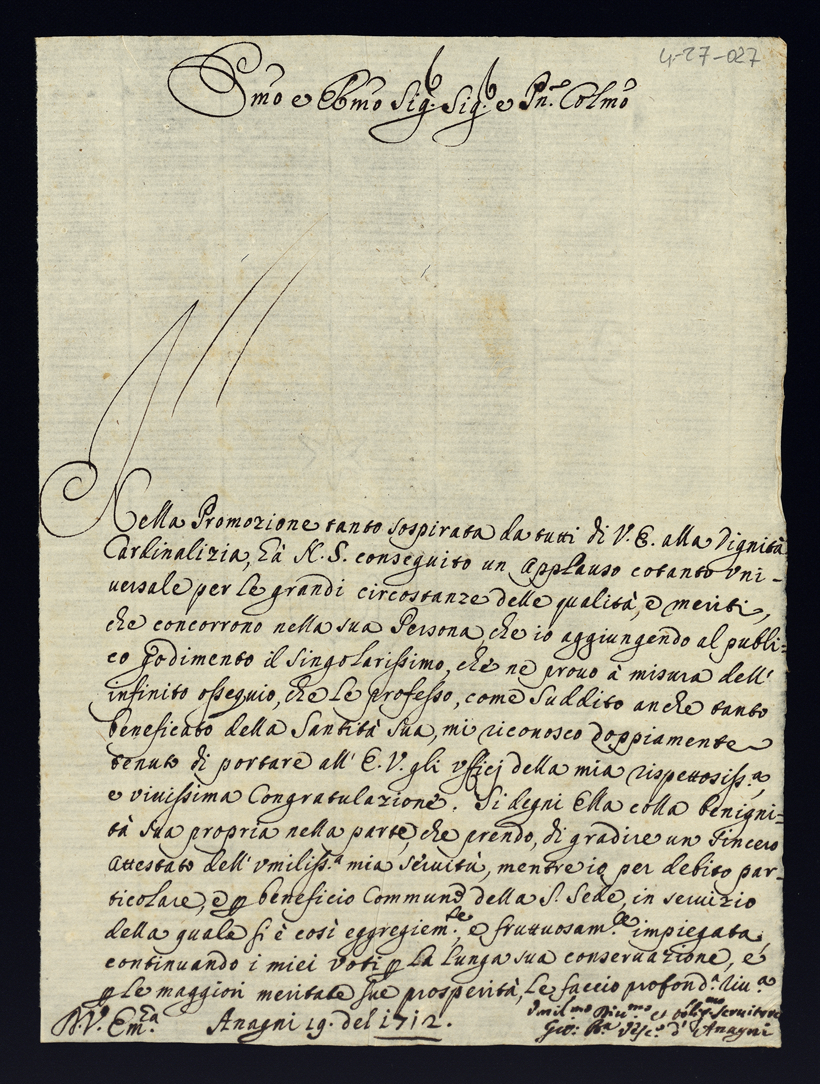 4-27-027
Emo e Rmo Sig.r Sig.r e Pn.e Colmo
Nella Promozione tanto sospirata da tutti di V. E. alla Dignità
Cardinalizia, hà N. S. conseguito un applauso cotanto vni-
uersale per le grandi circostanze delle qualità, e meriti,
che concorrono nella sua Persona, che io aggiungendo al publi=
co godimento il singolarissimo, che ne prouo à misura dell'
infinito ossequio, che Le professo, come Suddito anche tanto
beneficato della Santità Sua, mi riconosco doppiamente
tenuto di portare all' E. V. gli vfficj della mia rispettosiss.a
e viuissima Congratulazione. Si degni Ella colla benigni=
tà sua propria nella parte, che prendo, di gradire un sincero
attestato dell' vmiliss.a mia seruitù, mentre io per debito par-
ticolare, e p beneficio Commune della S. Sede, in seruizio
della quale si è così eggregiem.te, e fruttuosam.te impiegata,
continuando i miei voti p la lunga sua conseruazione, e
p le maggiori meritate sue prosperità, Le faccio profond.a riu.a
D. V. Em.za Anagni 19. del 1712.
Vmil.mo Diu.mo et obblig.mo Seruitore
Gio: Ba Vesc.o d'Anagni